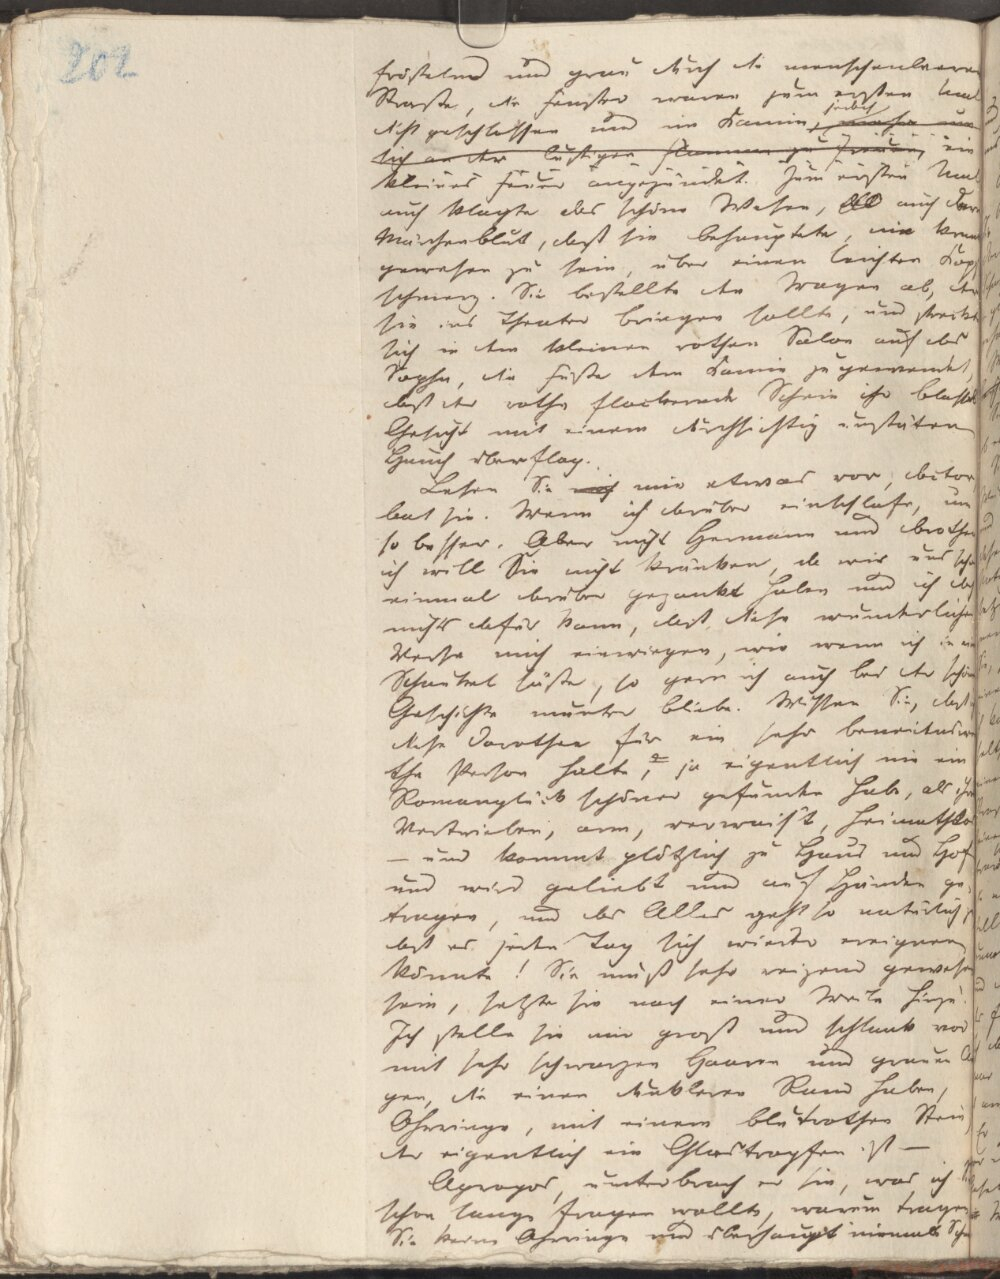 202
fröstelnd und grau durch die menschenleere
Straße, die Fenster waren zum ersten Mal
dicht geschlossen und im Kamin, jedoch
sich an der lustigen Flamme zu freuen, ein
kleines Feuer angezündet. Zum ersten Mal
auch klagte das schöne Wesen, auch
Märchenblut, daß sie behauptete, nie krank
gewesen zu sein, über einen leichten Kopf
schmerz. Sie bestellte den Wagen ab, der
sie ins Theater bringen sollte, und streckte
sich in dem kleinen rothen Salon auf das
Sopha, die Füße dem Kamin zugewendet,
daß der rothe flackernde Schein ihr blasses
Gesicht mit einem durchsichtig unstäten
Hauch überflog.
Lesen Sie mir etwas vor,
bat sie. Wenn ich drüber einschlafe, um
so besser. Aber nicht Hermann und Dorothea
ich will Sie nicht kränken, da wir uns schon
einmal drüber gezankt haben und ich doch
nichts dafür kann, daß diese wunderlichen
Verse mich einwiegen, wie wenn ich in einer
Schaukel säße, so gern ich auch bei der schönen
Geschichte munter bliebe. Wissen Sie, daß ich
diese Dorothea für ein sehr beneidenswer
the Person halte, ja eigentlich nie ein
Romanglück schöner gefunden habe, als ihr
Vertrieben, arm, verwais't, heimathlos
— und kommt plötzlich zu Haus und Hof
und wird geliebt und auf Händen ge
tragen, und das Alles geht so natürlich zu
daß es jeden Tag sich wieder ereignen
könnte! Sie muß sehr reizend gewesen
sein, setzte sie nach einer Weile hinzu.
Ich stelle sie mir groß und schlank vor
mit sehr schwarzen Haaren und grauen Au
gen, die einen dunkleren Rand haben,
Ohrringe, mit einem blutrothen Stein,
der eigentlich ein Glastropfen ist —
Apropos, unterbrach er sie, was ich
schon lange fragen wollte, warum tragen
Sie keine Ohrringe und überhaupt niemals